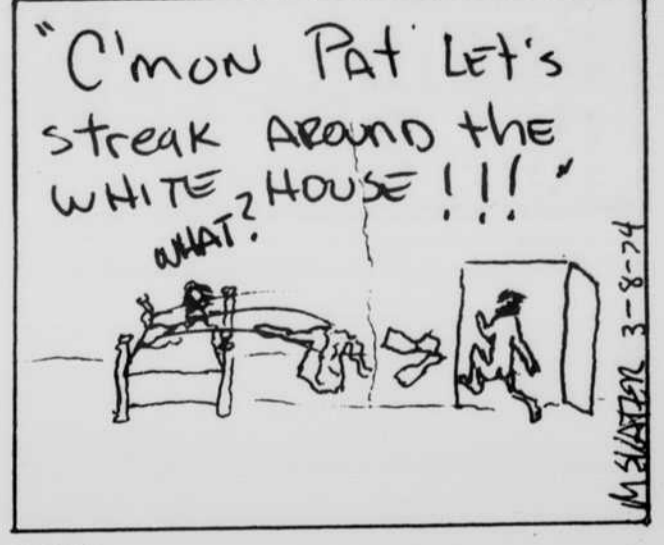 "C'mon Pat Let's
streak Around the
WHITE HOUSE!!!"
WHAT?
M SLATER 3-8-74